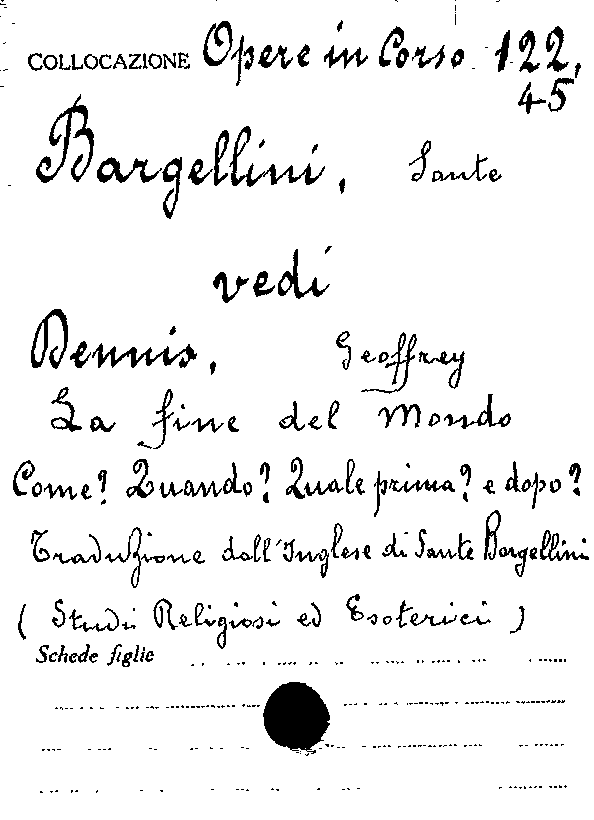 COLLOCAZIONE Opere in Corso 122,
45
Bargellini, Sante
vedi
Dennis, Geoffrey
La fine del Mondo
Come? Quando? Quale prima? e dopo?
Traduzione dall'Inglese di Sante Bargellini
( Studii Religiosi ed Esoterici )
Schede figlie